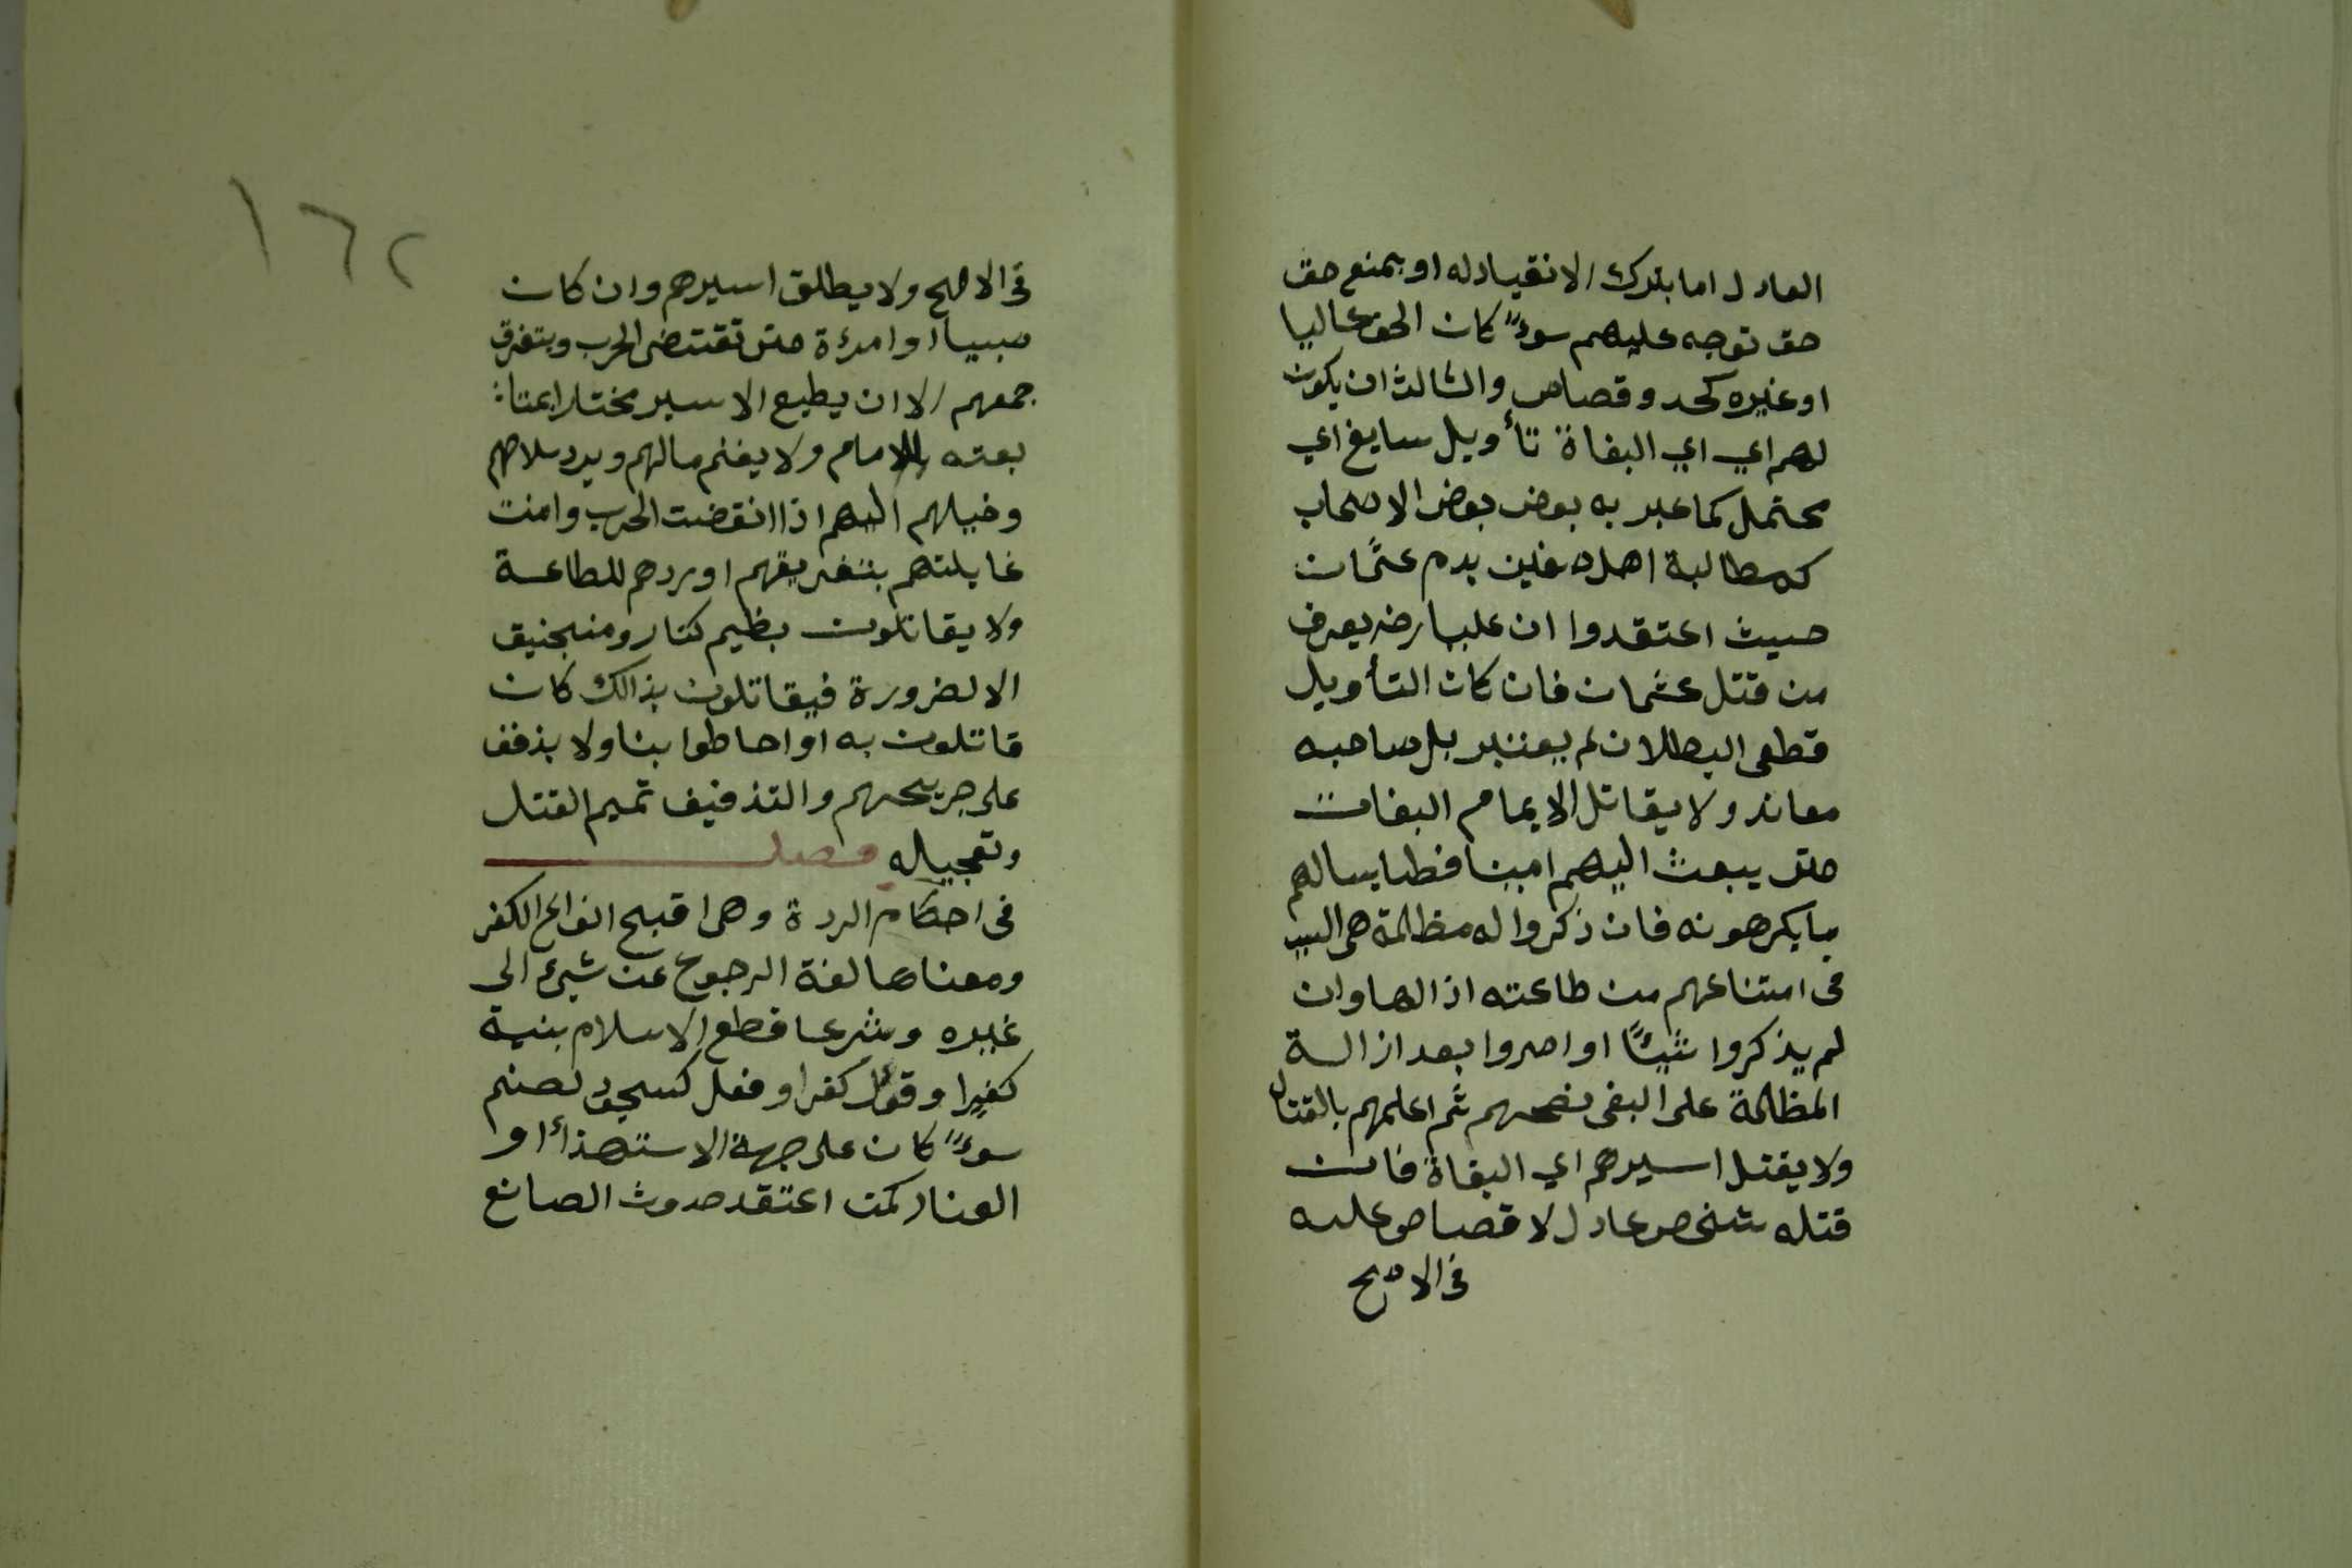 العادل اما بترك الانقياد له او بمنع حق
حق توجه عليهم سوءً كان الحق ماليا
او غيره كحد وقصاص والثالث ان يكون
لهم اي اي البغاة تأويل سايغ اي
محتمل كما عبر به بعض بعض الاصحاب
كمطالبة اهل صفين بدم عثمان
حيث اعتقدوا ان عليا رضه يعرف
من قتل عثمان فان كان التأويل
قطعى البطلان لم يعتبر بل صاحبه
معاند ولا يقاتل الايمام البغات
حتى يبعث اليهم امينا فطنا يسالهم
ما يكرهونه فان ذكروا له مظالمة هى السبب
فى امتناعهم من طاعته ازالها وان
لم يذكروا شيئًا او اصروا بعد ازالة
المظالمة على البغى نصحهم ثم اعلمهم بالقتال
ولا يقتل اسيرهم اي البغاة فان
قتله شخص عادل لا قصاص عليه
فى الاصح
١٦٢
فى الاصح ولا يطلق اسيرهم وان كان
صبيا او امرءة حتى تقتضى الحرب ويتفرق
جمعهم الا ان يطيع الاسير مختارا بمتا
بعته للامام ولا يغنم مالهم ويرد سلاحهم
وخيلهم اليهم اذا انقضت الحرب وامنت
غايلتهم بتفريقهم او ردهم للطاعة
ولا يقاتلون بعظيم كنار ومنجنيق
الا لضرورة فيقاتلون بذالك كان
قاتلون به او احاطوا بنا ولا يذفف
على جريحهم والتذفيف تميم القتل
وتعجيله فصل
فى احكام الردة وهى اقبح انواع الكفر
ومعناها لغة الرجوع عن شيء الى
غيره وشرعا قطع الاسلام بنية
كفرا وقول كفر او فعل كسجود لصنم
سوءً كان على جهة الاستهذأ او
العناد كمن اعتقد حدوث الصانع